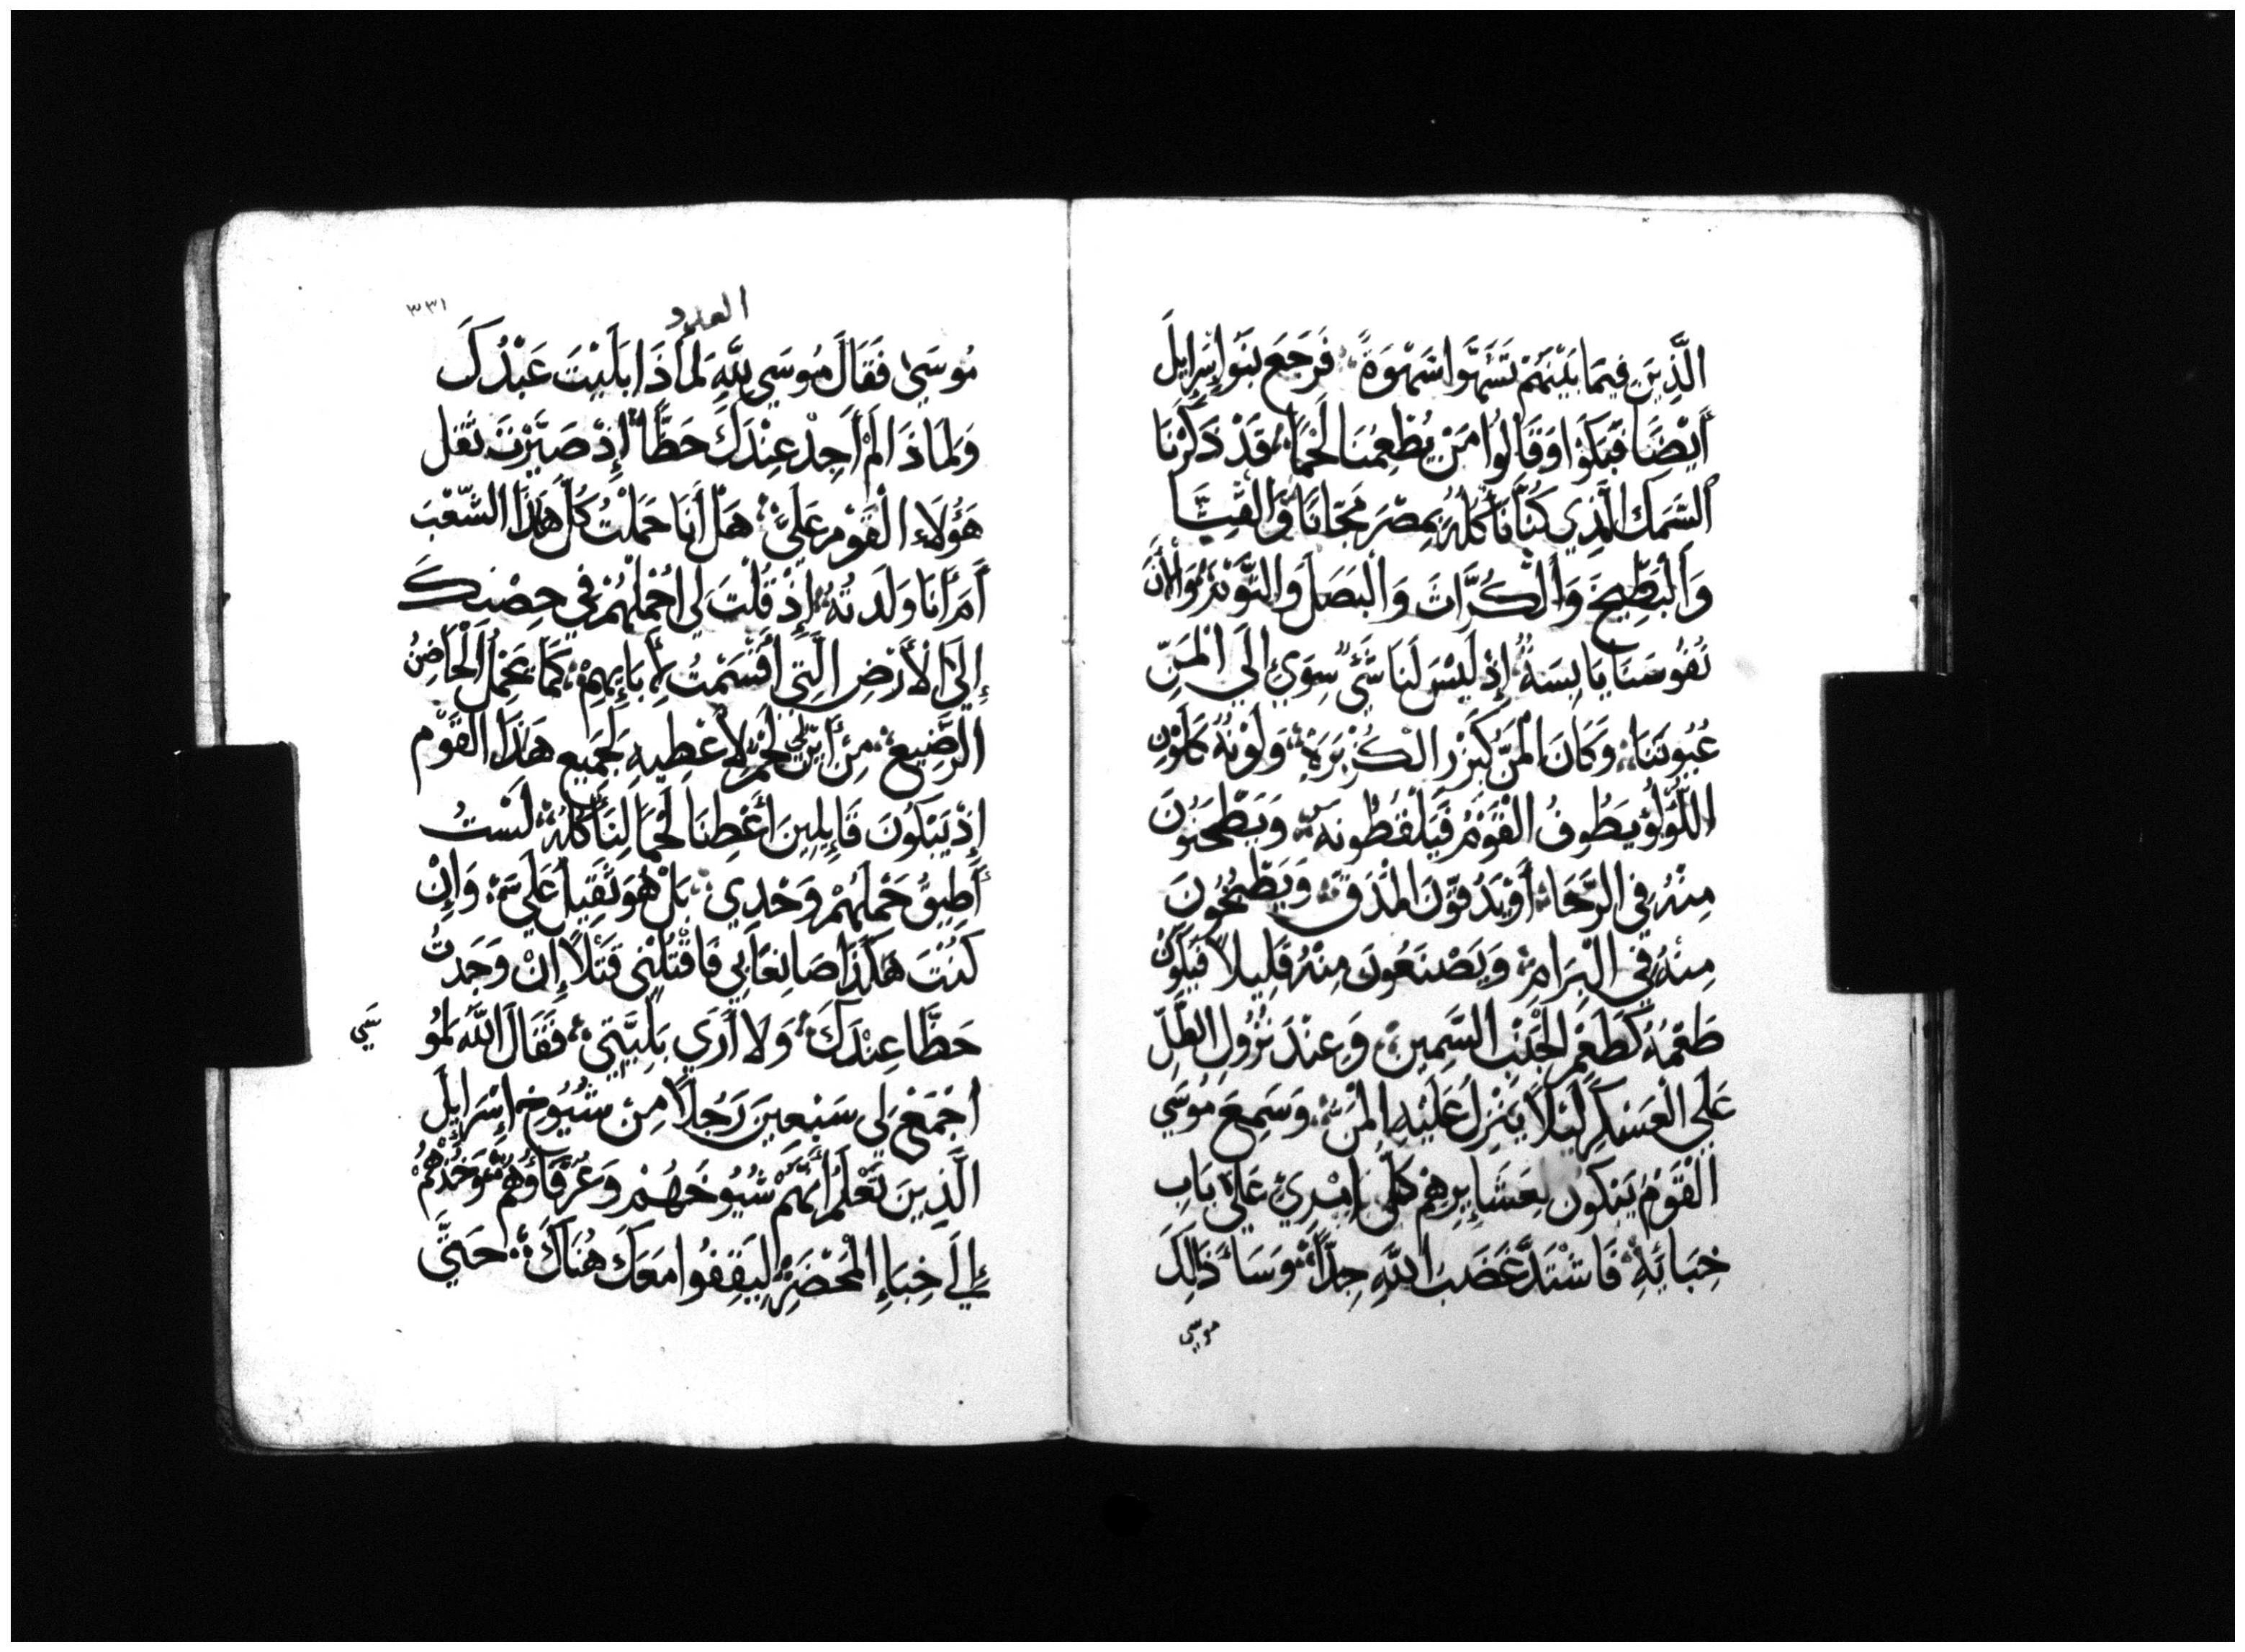 الَّذِينَ فِيمَا بَيْنَهُمْ تَشَهَّوْا شَهْوَةً فَرَجَعَ بَنُوا إِسْرَايِلَ
أَيْضًا فَبَكَوْا وَقَالُوا مَنْ يُطْعِمُنَا لَحْمًا قَدْ ذَكَرْنَا
السَّمَكَ الَّذِي كُنَّا نَأْكُلُهُ بِمِصْرَ مَجَّانًا وَالْقِثَّا
وَالْبَطِّيخَ وَالْكُرَّاثَ وَالْبَصَلَ وَالثَّوْمَ وَالْأَنَ
نُفُوسَنَا يَابِسَةٌ إِذْ لَيْسَ لَنَا شَيْءٌ سِوَى إِلَى الْمَنِّ
عُيُونَنَا وَكَانَ الْمَنُّ كَبَزْرِ الْكُزْبَرَةِ وَلَوْنُهُ كَلَوْنِ
اللُّوْلُؤِ يَطُوفُ الْقَوْمُ فَيَلْقُطُونَهُ وَيَطْحَنُونَ
مِنْهُ فِي الرَّحَا أَوْ يَدُقُّونَ الْمَدَقِّ وَيَطْبُخُونَ
مِنْهُ فِي الْبِرَامِ وَيَصْنَعُونَ مِنْهُ قَلِيلًا فَيَكُونُ
طَعْمُهُ كَطَعْمِ الْخُبْزِ السَّمِينِ وَعِنْدَ نُزُولِ الطَّلِّ
عَلَى الْعَسْكَرِ لَيْلًا يَنْزِلُ عَلَيْهِ الْمَنُّ وَسَمِعَ مُوسَي
الْقَوْمَ يَبْكُونَ لِعَشَايِرِهِمْ كُلُّ امْرِئٍ عَلَى بَابِ
خِبَائِهِ فَاشْتَدَّ غَضَبُ اللَّهِ جِدًّا وَسَاءَ ذَالِكَ
موسي
العدد
٣٣١
مُوسَى فَقَالَ مُوسَي لِلَّهِ لِمَاذَا بَلَيْتَ عَبْدَكَ
وَلِمَاذَا لَمْ أَجِدْ عِنْدَكَ حَظًّا إِذْ صَيَّرْتَ ثِقْلَ
هَؤُلَاءِ الْقَوْمِ عَلَيَّ هَلْ أَنَا حَمَلْتُ كُلَّ هَذَا الشَّعْبَ
أَمْ أَنَا وَلَدْتُهُ إِذْ قُلْتَ لِي احْمِلْهُمْ فِي حِضْنِكَ
إِلَى الْأَرْضِ الَّتِي أَقْسَمْتُ لِأَبَايِهِمْ كَمَا يَحْمِلُ الْحَاضِنُ
الرَّضِيعَ مِنْ أَيْنَ لِي لَحْمٌ لِأُعْطِيهِ لِجَمِيعِ هَذَا الْقَوْمِ
إِذْ يَبْكُونَ قَايِلِينَ أَعْطِنَا لَحْمًا لِنَأْكُلَهُ لَسْتُ
أُطِيقُ حَمْلَهُمْ وَحْدِي بَلْ هُوَ ثَقِيلٌ عَلَيَّ وَإِنْ
كُنْتَ هَكَذَا صَانِعًا بِي فَاقْتُلْنِي قَتْلًا إِنْ وَجَدْتُ
حَظًّا عِنْدَكَ وَلَا أَرَي بَلِيَّتِي فَقَالَ اللَّهُ لِمُو
سَي
اجْمَعْ لِي سَبْعِينَ رَجُلًا مِنْ شُيُوخِ إِسْرَايِلَ
الَّذِينَ تَعْلَمُ أَنَّهُمْ شُيُوخُهُمْ وَعُرَفَاؤُهُمْ وَخُذْهُمْ
إِلَى خِبَاءِ الْمَحْضَرِ لِيَقِفُوا مَعَكَ هُنَاكَ حَتَّي